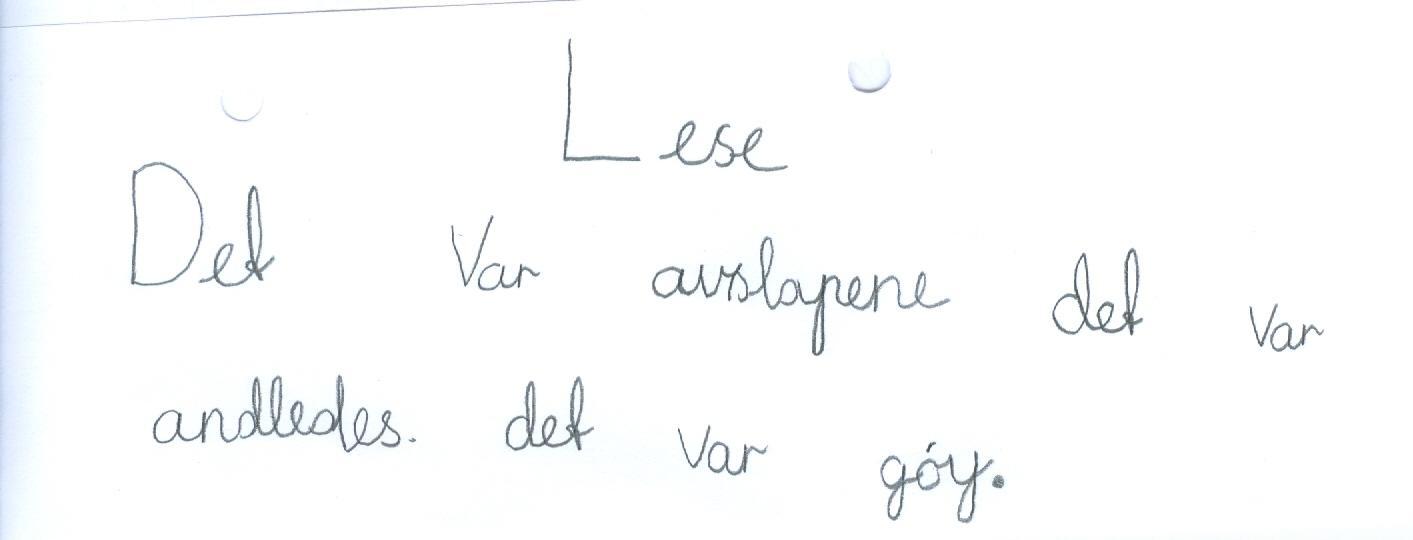 Lese
Det var avslapene det var
andledes. det var góy.